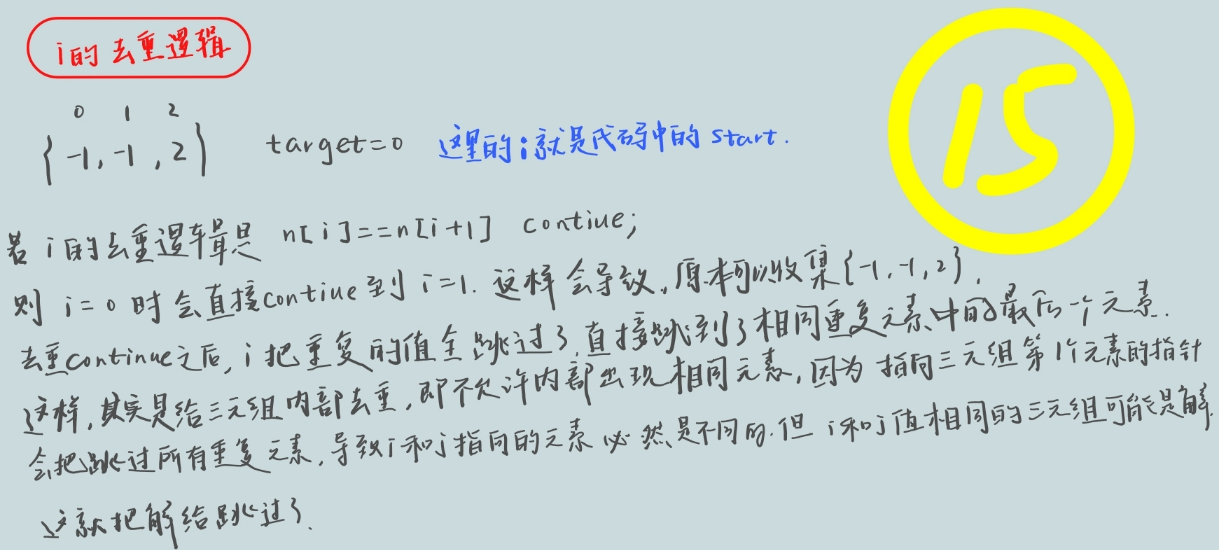 i的去重逻辑
15
0 1 2
{-1,-1,2} target=0 这里的i就是代码中的start.
若i的去重逻辑是 n[i]==n[i+1] contiue;
则 i=0时会直接contiue到 i=1. 这样会导致,原本可以收集{-1,-1,2},
去重continue之后,i把重复的值全跳过了,直接跳到了相同重复元素中的最后一个元素.
这样,其实是给三元组内部去重,即不允许内部出现相同元素,因为指向三元组第1个元素的指针
会把跳过所有重复元素,导致i和j指向的元素必然是不同的.但i和j值相同的三元组可能是解.
这就把解给跳过了.